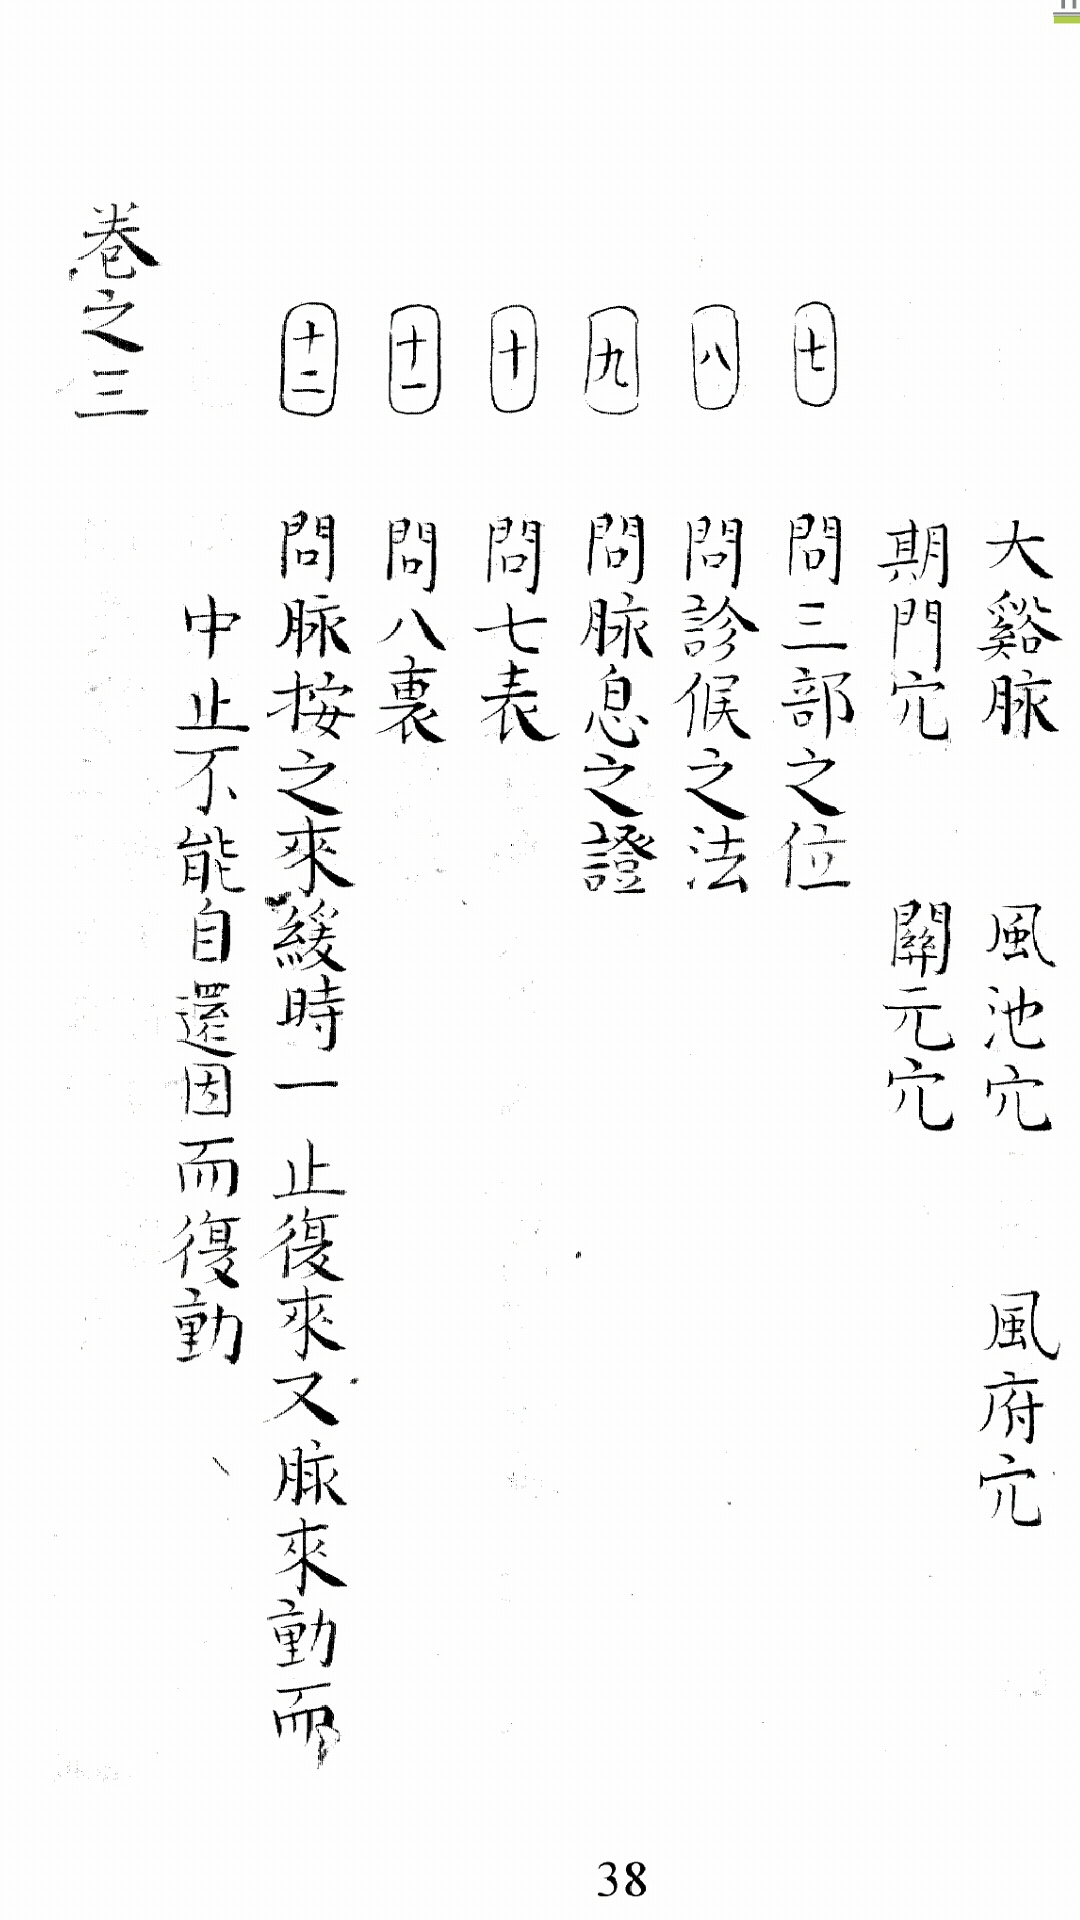 大谿脉　風池穴　風府穴
期門穴　關元穴
七　問三部之位
八　問診候之法
九　問脉息之證
十　問七表
十一　問八裏
十二　問脉按之來緩時一止復來又脉來動而
中止不能自還因而復動
卷之三
38